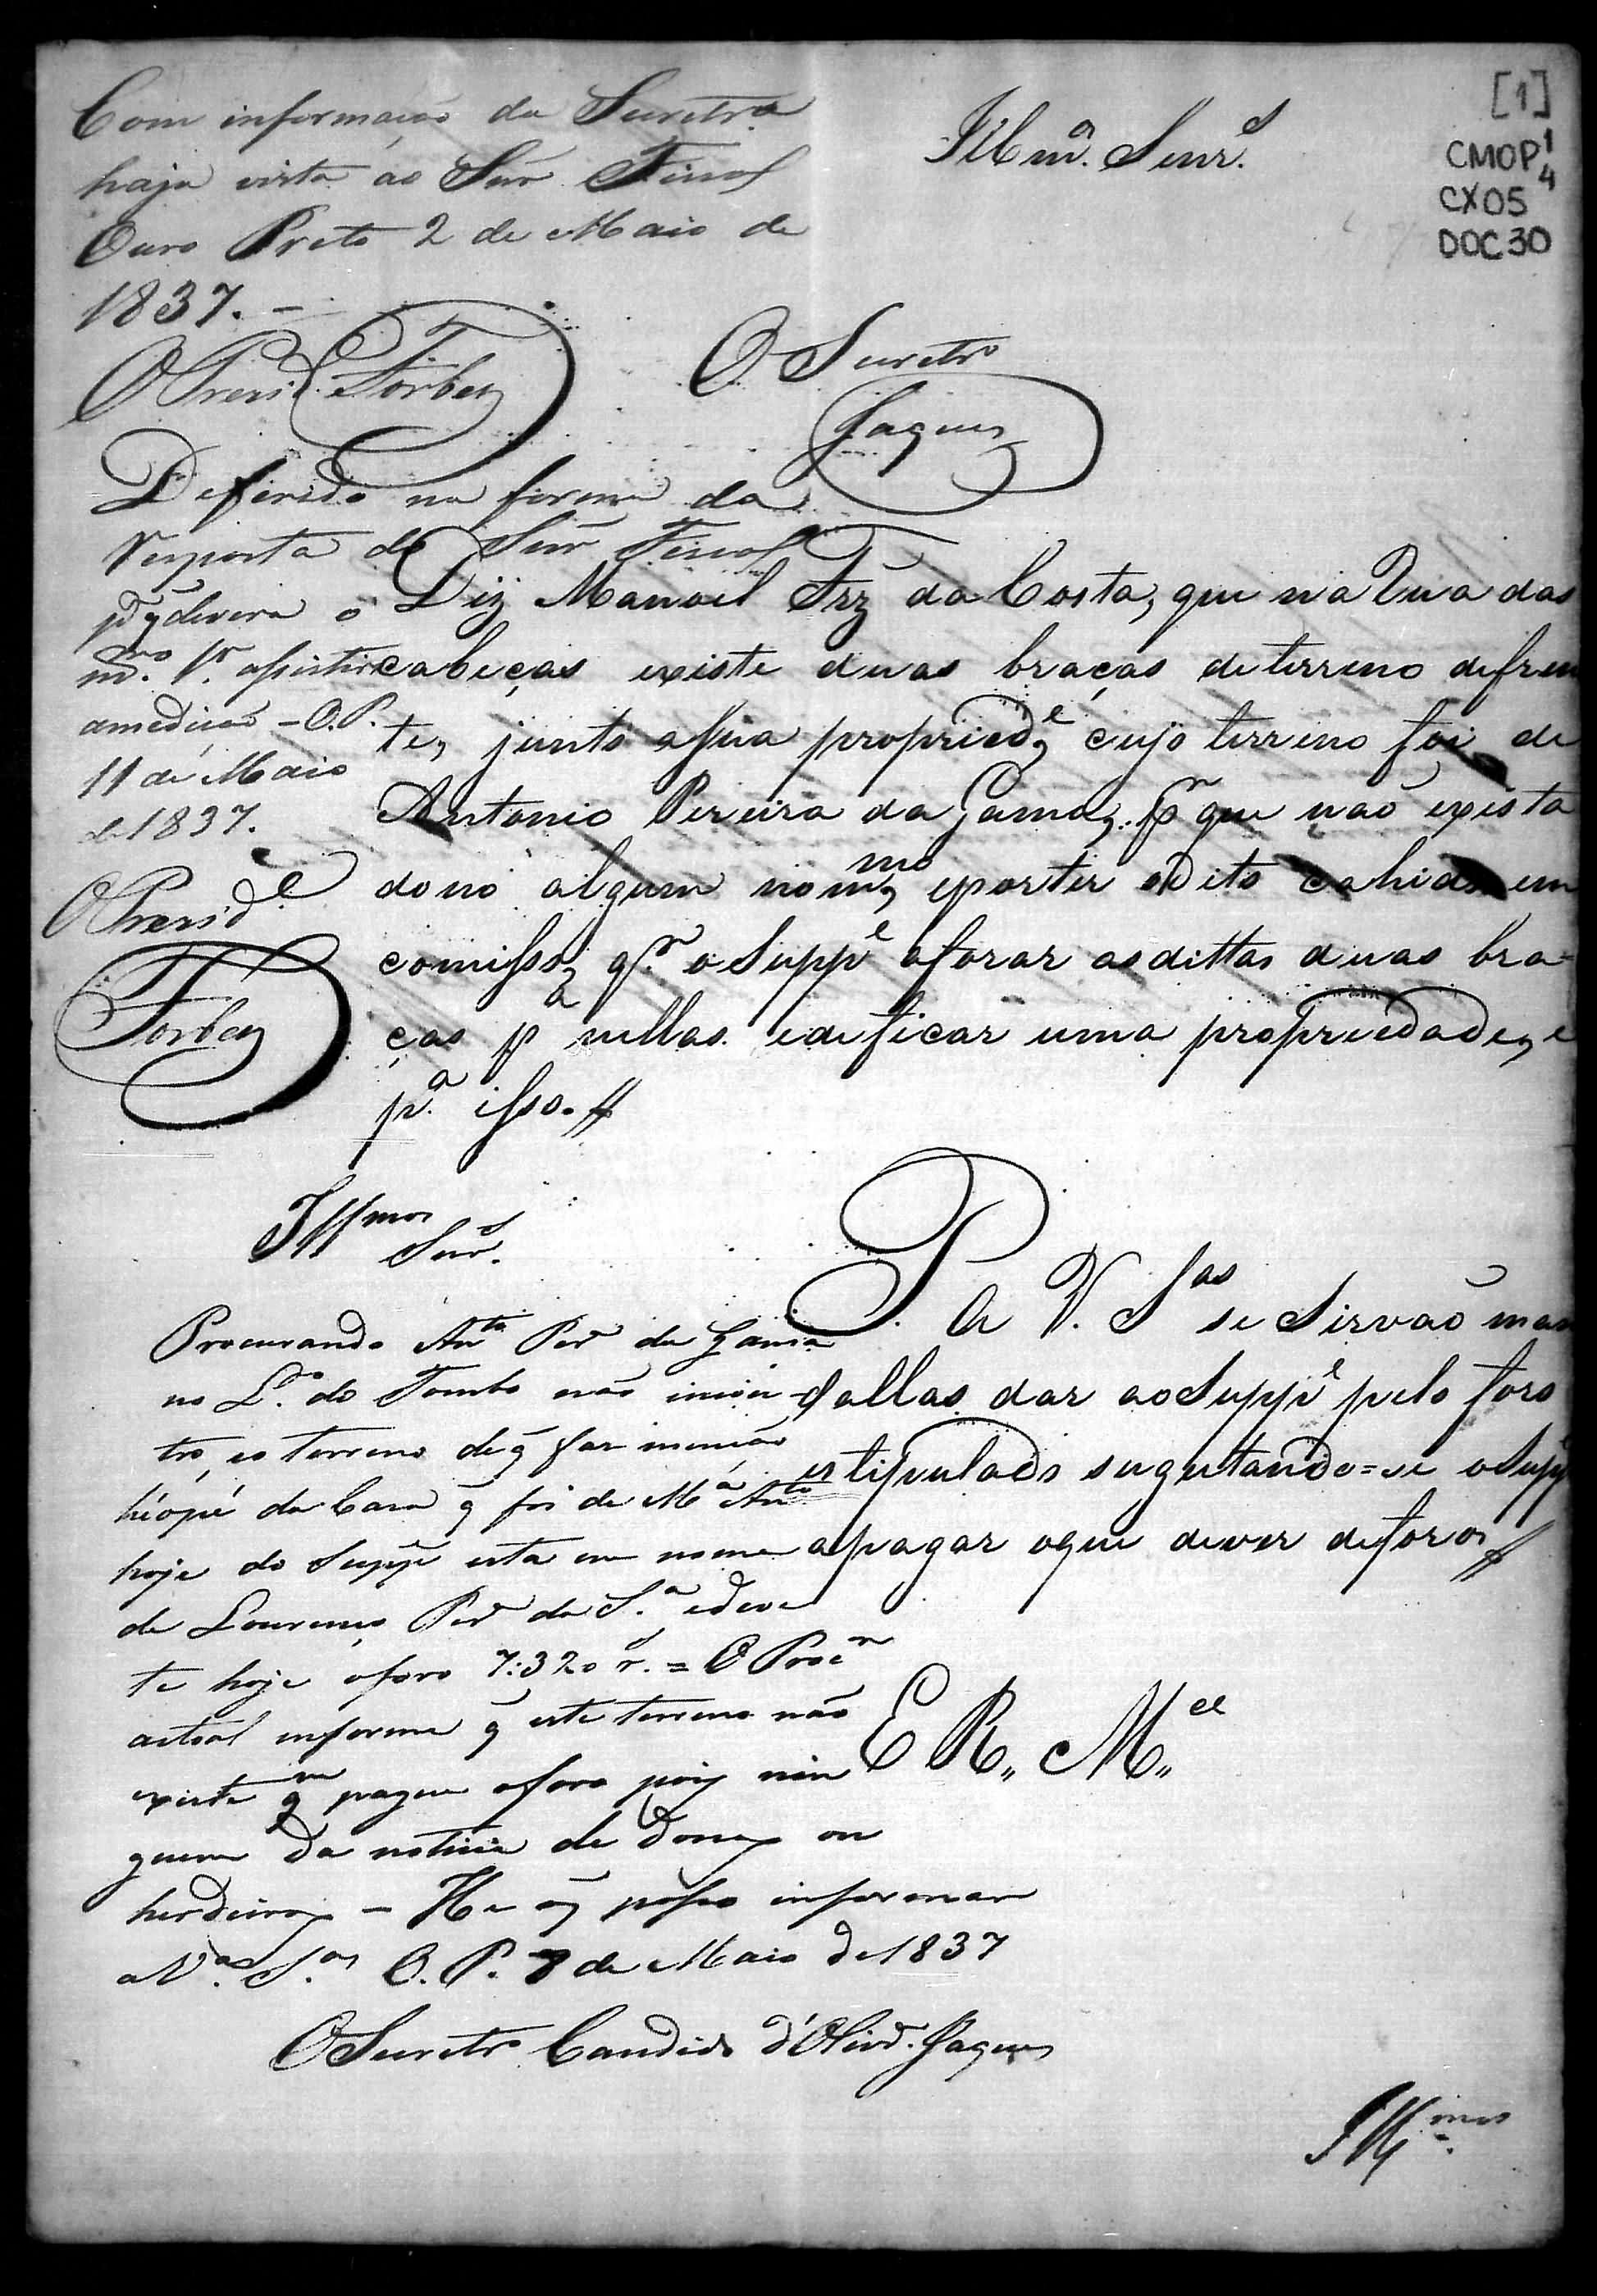 [1]
CMOP 1/4
CX05
DOC30
Com informação do Secretro
haja vista ao Snr Fiscal
Ouro Preto 2 de Maio de
1837. –
O Presid.e Forbes
O Secretro
Jaques
Illm.os Senr.s
Deferido na forma da
resposta do Snr Fiscal
p.m q devera o
m.mo Sr. assistir
a medição – O.P.
11 de Maio
de 1837.
O Presid.e
Forbes
Diz Manoel Frz da Costa, que na Rua das
cabeças existe duas braças de terreno de fren
te, junto a sua propried.e, cujo terreno foi de
Antonio Pereira da Gama, p.r que não exista
dono algum no m.mo, e por ter o dito cahido em
comisso, q.r o Supp.e aforar as dittas duas bra-
ças p.a nellas edificar uma propriedade, e
p.a isso. //
P. A V. S.as se Sirvaõ man
dallas dar ao Supp.e pelo foro
estipulado sugeitando=se o Supp.e
a pagar o que dever de foros //
E R,, M,,ce
Ill.mos
Snr.s
Procurando Ant.o Per.a da Gama
no L.ro do Tombo não incon
tro, eo terreno de q faz menção
hé o pé da Caza q foi de M.a Ant.a
hoje do Supp.e esta em nome
de Lourenço Per.a da S.a e deve
te hoje o foro 7:320 r.s = O Proc.r
actual informa q este terreno não
existe q.m pague o foro pois nin
guem da noticia de donos ou
herdeiros – He o q posso informar
a V.as S.as O. P. 8 de Maio de 1837
O Secretr.o Candido d'Oliv.a Jaques
Ill.mos